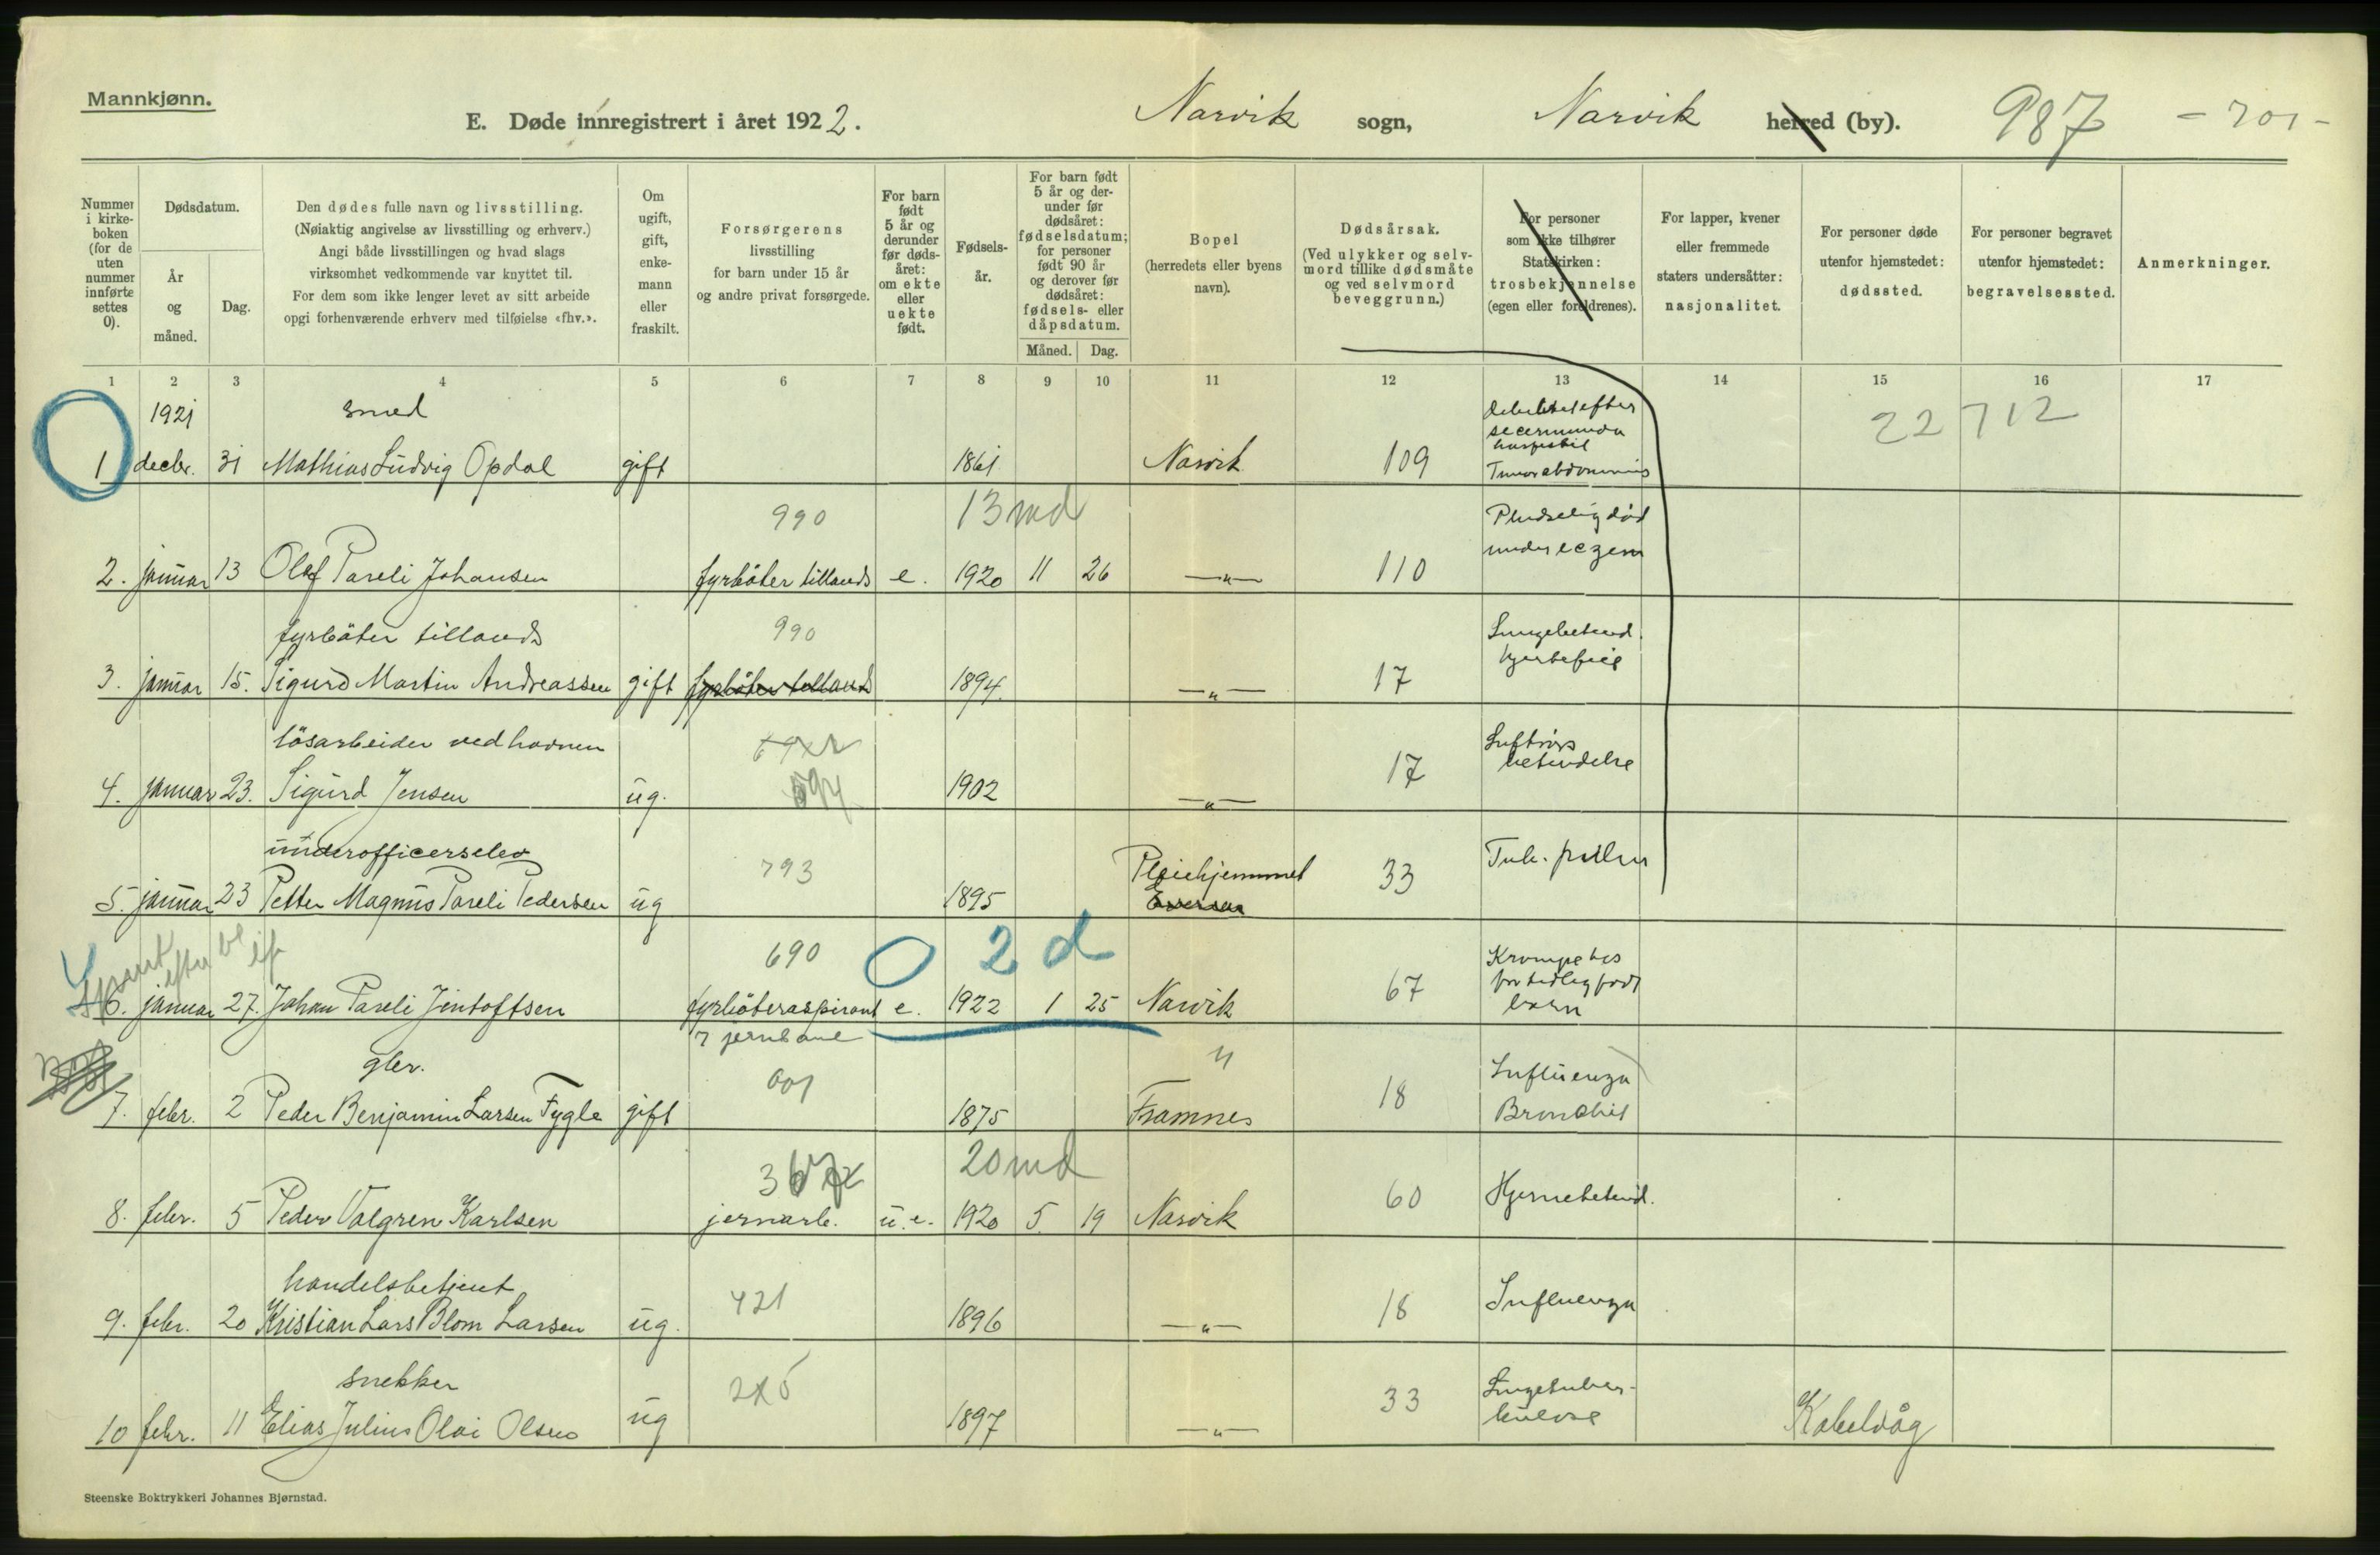 Mannkjønn.
E. Døde innregistrert i året 1922. Narvik sogn, Narvik herred (by). 987 - 701 -
Nummer i kirkeboken (for de uten nummer innførte settes 0).
Dødsdatum.
År og måned.
Dag.
Den dødes fulle navn og livsstilling.
(Nøiaktig angivelse av livsstilling og erhverv.)
Angi både livsstillingen og hvad slags
virksomhet vedkommende var knyttet til.
For dem som ikke lenger levet av sitt arbeide
opgi forhenværende erhverv med tilføielse «fhv.».
Om ugift, gift, enkemann eller fraskilt.
Forsørgerens
livsstilling
for barn under 15 år
og andre privat forsørgede.
For barn født 5 år og derunder før dødsåret: om ekte eller uekte født.
Fødselsår.
For barn født 5 år og derunder før dødsåret: fødselsdatum; for personer født 90 år og derover før dødsåret: fødsels- eller dåpsdatum.
Måned. Dag.
Bopel
(herredets eller byens navn).
Dødsårsak.
(Ved ulykker og selvmord tillike dødsmåte og ved selvmord beveggrunn.)
For personer
som ikke tilhører
Statskirken:
trosbekjennelse
(egen eller foreldrenes).
For lapper, kvener
eller fremmede
staters undersåtter:
nasjonalitet.
For personer døde
utenfor hjemstedet:
dødssted.
For personer begravet
utenfor hjemstedet:
begravelsessted.
Anmerkninger.
1 2 3 4 5 6 7 8 9 10 11 12 13 14 15 16 17
1921 smed 22712
1 decbr. 31 Mathias Ludvig Opdal gift 1861 Narvik 109 Tumor abdominis
990 13 md Pludselig død
2. januar 13 Olaf Pareli Johansen fyrbøter tillands e. 1920 11 26 —„— 110 under eczem
fyrbøter tillands 990 Lungebetend.
3. januar 15. Sigurd Martin Andreassen gift fyrbøter tillands 1894. —„— 17 hjertefeil
løsarbeider ved havnen Luftrørs
4. januar 23. Sigurd Jensen ug. 1902 —„— 17 betendelse
underofficerselev 793 Pleiehjemmet
5. januar 23 Petter Magnus Pareli Pedersen ug 1895 33 Tub. pulm
690 2 d Krampe hos
6. januar 27. Johan Pareli Jintoftsen fyrbøteraspirant e. 1922 1 25 Narvik 67 for tidlig født
barn
v jernbane
gbr. 001 Influenza
7. febr. 2 Peder Benjamin Larsen Fygle gift 1875 Framnes 18 Bronchit
20 md
8. febr. 5 Peder Valgren Karlsen jernarb. u.e. 1920 5. 19 Narvik 60 Hjernebetend.
handelsbetjent 421
9. febr. 20 Kristian Lars Blom Larsen ug. 1896 —„— 18 Influenza
snekker Lungetuber-
10 febr. 11 Elias Julius Olai Olsen ug 1897 —„— 33 kulose Kabelvåg
Steenske Boktrykkeri Johannes Bjørnstad.